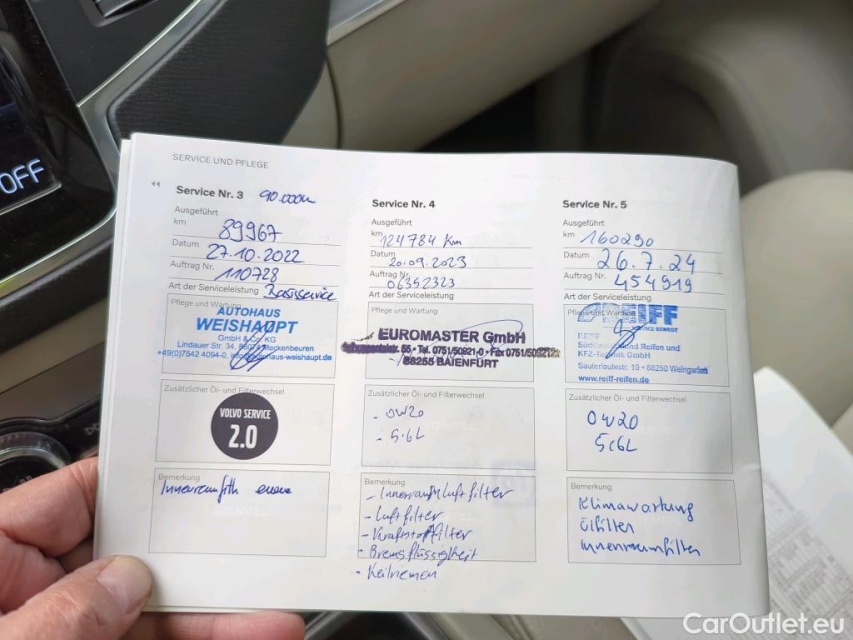 OFF
SERVICE UND PFLEGE
Service Nr. 3 90.000
Ausgeführt
km 89967
Datum 27.10.2022
Auftrag Nr. 110728
Art der Serviceleistung Basisservice
Pflege und Wartung
AUTOHAUS
WEISHAUPT
GmbH & Co. KG
Lindauer Str. 34, Meckenbeuren
+49(0)7542 4094-0, autohaus-weishaupt.de
Zusätzlicher Öl- und Filterwechsel
VOLVO SERVICE
2.0
Bemerkung
Service Nr. 4
Ausgeführt
km 124784 km
Datum 20.09.2023
Auftrag Nr. 06392323
Art der Serviceleistung
Pflege und Wartung
EUROMASTER GmbH
55 • Tel. 0751/50921-0 • Fax 0751/509212
88255 BAIENFURT
Zusätzlicher Öl- und Filterwechsel
- 0W20
- 5,6L
Bemerkung
- Innenraumluftfilter
- Luftfilter
- Kraftstoffilter
- Bremsflüssigkeit
- Keilriemen
Service Nr. 5
Ausgeführt
km 160290
Datum 26.7.24
Auftrag Nr. 454919
Art der Serviceleistung
REIFF
REIFF
Reifen und
KFZ-Technik GmbH
Sauterleutestr. 19 • 88250 Weingarten
www.reiff-reifen.de
Zusätzlicher Öl- und Filterwechsel
0W20
5,6L
Bemerkung
Klimawartung
Ölfilter
Innenraumfilter
CarOutlet.eu